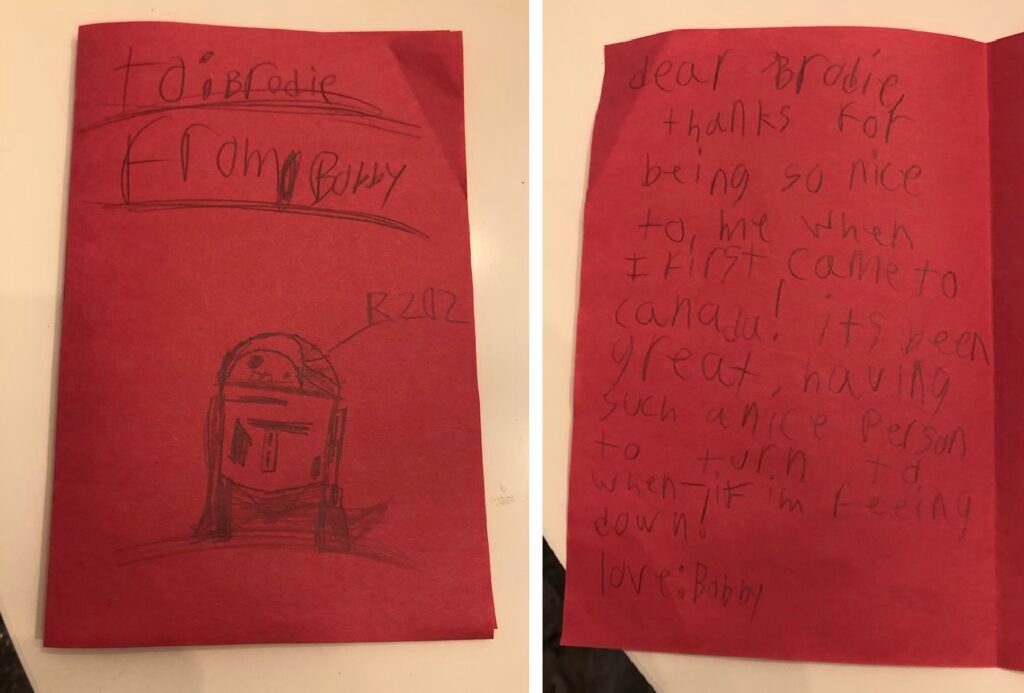 to: Brodie
From, Bobby
R2D2
dear Brodie,
thanks For
being so nice
to, me when
I First came to
canada! its been
great, having
such a nice Person
to turn to
when-if im Feeing
down!
love: Bobby